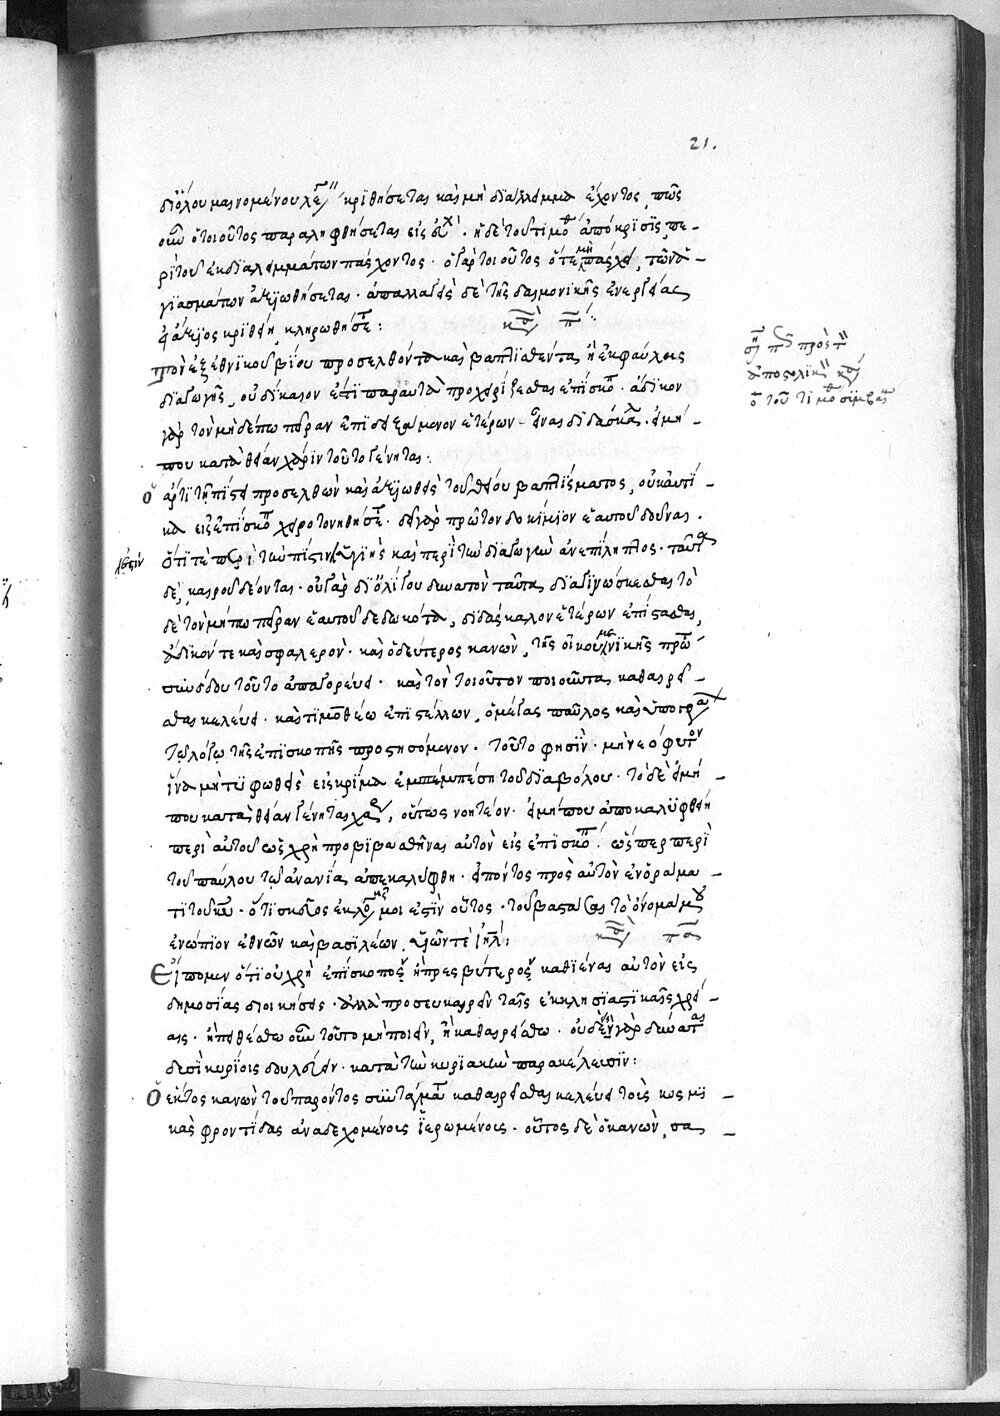 21.
διόλου μαινομένου λεχ κριθήσεται καὶ μὴ διάλλειμμα ἔχοντος, πῶς
οὖν ὁ τοιοῦτος παραληφθήσεται εἰς εὐχ· ἡ δὲ τοῦ τιμοθ ἀπόκρισις, πε-
ρὶ τοῦ ἐκ διαλειμμάτων πάσχοντος· ὁ γὰρ τοιοῦτος ὅτε μὴ πάσχει, τῶν ἁ-
γιασμάτων ἀξιωθήσεται· ἀπαλλαγεὶς δὲ τῆς δαιμονικῆς ἐνεργείας
εἰ ἄξιος κριθείη κληρωθήσετ:
κεφ π΄:
τὸν ἐξ ἐθνικοῦ βίου προσελθόντα καὶ βαπτισθέντα, ἢ ἐκ φαύλης
διαγωγῆς, οὐ δίκαιον ἐστὶ παραυτὰ προχειρίζεσθαι ἐπίσκοπ· ἄδικον
γὰρ τὸν μηδέπω πεῖραν ἐπιδειξάμενον ἑτέρων εἶναι διδάσκαλ· εἰ μή -
που κατὰ θείαν χάριν τοῦτο γένηται:
Ὁ ἄρτι τῇ πίστει προσελθὼν καὶ ἀξιωθεὶς τοῦ θείου βαπτίσματος, οὐκ αὐτί -
κα εἰς ἐπίσκοπ χειροτονηθήσετ· δεῖ γὰρ πρῶτον δοκίμιον ἑαυτοῦ δοῦναι.
ὅτι τὲ περὶ τὴν πίστιν ὑγιής καὶ περὶ τὴν διαγωγὴν ἀνεπίληπτος· ταῦτα
δὲ, καιροῦ δέονται· οὐ γὰρ δι' ὀλίγου δυνατὸν ταῦτα διαγινώσκεσθαι τὸ
δὲ τὸν μήπω πεῖραν ἑαυτοῦ δεδωκότα, διδάσκαλον ἑτέρων ἐφίστασθαι,
ἄδικόν τε καὶ σφαλερόν· καὶ ὁ δεύτερος κανὼν, τῆς οἰκουμενικῆς πρώτ
συνόδου τοῦτο ἀπαγορεύει· καὶ τὸν τοιοῦτον ποιοῦντα, καθαιρεῖ -
σθαι κελεύει· καὶ τιμοθέω ἐπιστέλλων, ὁ μέγας παῦλος καὶ ὑπογράφ
τῷ λόγω τῆς ἐπισκοπῆς προστησόμενον· τοῦτο φησὶν· μὴ νεόφυτον
ἵνα μὴ τυφωθεὶς εἰς κρίμα ἐμπέμπεση τοῦ διαβόλου· τὸ δὲ εἰ μή -
που κατὰ θείαν γένηται χάριν, οὕτως νοητέον· εἰ μή που ἀποκαλυφθείη
περὶ αὐτοῦ ὡς χρὴ προβιβασθῆναι αὐτὸν εἰς ἐπίσκοπ· ὥσπερ περὶ
τοῦ παύλου τῷ ἀνανία, ἀπεκαλύφθη· εἰπόντος πρὸς αὐτὸν ἐν ὁράμα -
τι τοῦ κυ· ὅτι σκεῦος ἐκλογῆς μοι ἐστὶν οὗτος· τοῦ βαστάσαι τὸ ὄνομα μου
ἐνώπιον ἐθνῶν καὶ βασιλέων, υἱῶν τὲ ιηλ:
κεφ πα
Εἴπομεν ὅτι οὐ χρὴ ἐπίσκοπον ἢ πρεσβύτερον καθιέναι αὐτὸν εἰς
δημοσίας διοικήσεις· ἀλλὰ προσευκαιρεῖν ταῖς ἐκκλησιαστικαῖς χρεί -
αις· ἢ πειθέσθω οὖν τοῦτο μὴ ποιεῖν, ἢ καθαιρείσθω· οὐδεὶς γὰρ δύνατ
δυσὶ κυρίοις δουλεύειν· κατὰ τὴν κυριακὴν παρακέλευσιν:
Ὁ ἕκτος κανὼν τοῦ παρόντος συντάγματ καθαιρεῖσθαι κελεύει τοὺς κοσμι -
κὰς φροντίδας ἀναδεχομένους ἱερωμένους· οὗτος δὲ ὁ κανὼν, σα -
λέξιν
ση περ πρὸς τ
ἀποστολικ κεφ
ο τοῦ τιμοθ σύμβας